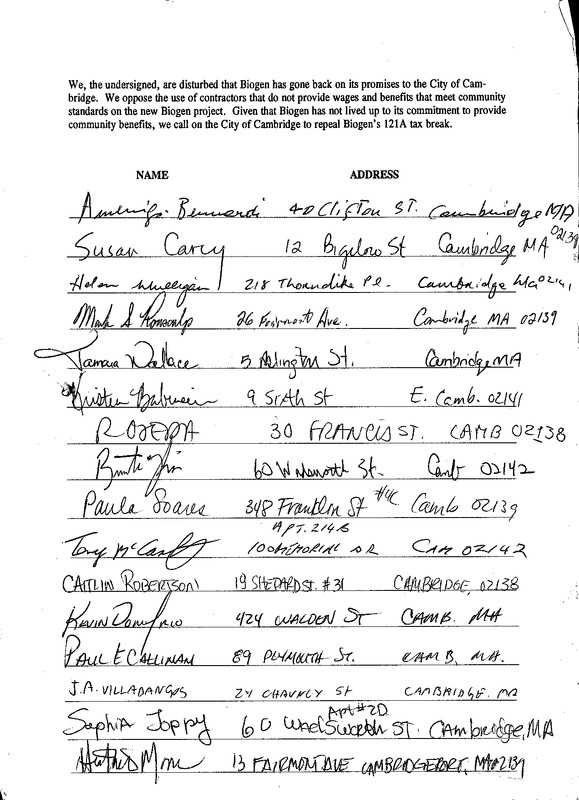 We, the undersigned, are disturbed that Biogen has gone back on its promises to the City of Cam-
bridge. We oppose the use of contractors that do not provide wages and benefits that meet community
standards on the new Biogen project. Given that Biogen has not lived up to its commitment to provide
community benefits, we call on the City of Cambridge to repeal Biogen's 121A tax break.
NAME ADDRESS
Amerigo Bernardi 40 Clifton ST. Cambridge MA
Susan Carey 12 Bigelow St Cambridge MA 02139
Helen Mulligan 218 Thorndike Pl. Cambridge Ma 02141
Mark S 26 Fairmont Ave. Cambridge MA 02139
Tamara Wallace 5 Arlington St. Cambridge, MA
Kristen 9 Sixth St E. Camb. 02141
30 FRANCIS ST. CAMB 02138
60 Wadsworth St. Camb 02142
Paula Soares 348 Franklin St #4C Camb 02139
APT. 214B
Tony 100 MEMORIAL DR CAM 02142
CAITLIN ROBERTSON 19 SHEPARD ST. #31 CAMBRIDGE, 02138
KEVIN 424 WALDEN ST CAMB. MA
PAUL E CALLINAN 89 PLYMOUTH ST. CAMB, MA.
J.A. VILLADANGOS 24 CHAUNCY ST CAMBRIDGE. MA
Apt #2D
Sophia Joppy 60 Wadsworth ST. Cambridge, MA
13 FAIRMONT AVE CAMBRIDGEPORT, MA 02139